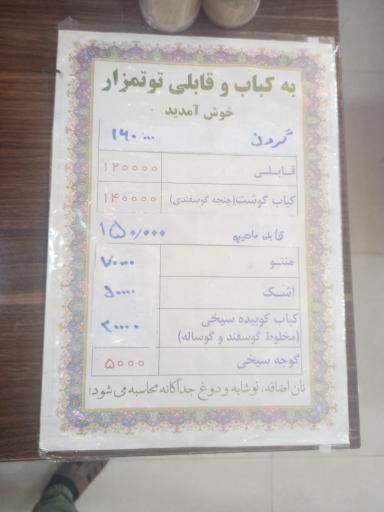 به کباب و قابلی توتمزار
خوش آمدید
گردن ۱۶۰۰۰۰
قابلی ۱۲۰۰۰۰
کباب گوشت(چنجه گوسفندی) ۱۴۰۰۰۰
قابلی ماهیچه ۱۵۰/۰۰۰
منتو ۷۰۰۰۰
آشک ۵۰۰۰۰
کباب کوبیده سیخی
(مخلوط گوسفند و گوساله) ۲۰۰۰۰
گوجه سیخی ۵۰۰۰
نان اضافه، نوشابه و دوغ جداگانه محاسبه می شود!